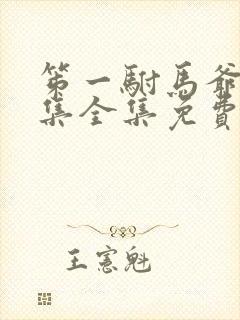 第一駙馬爺
集全集免費
王憲魁